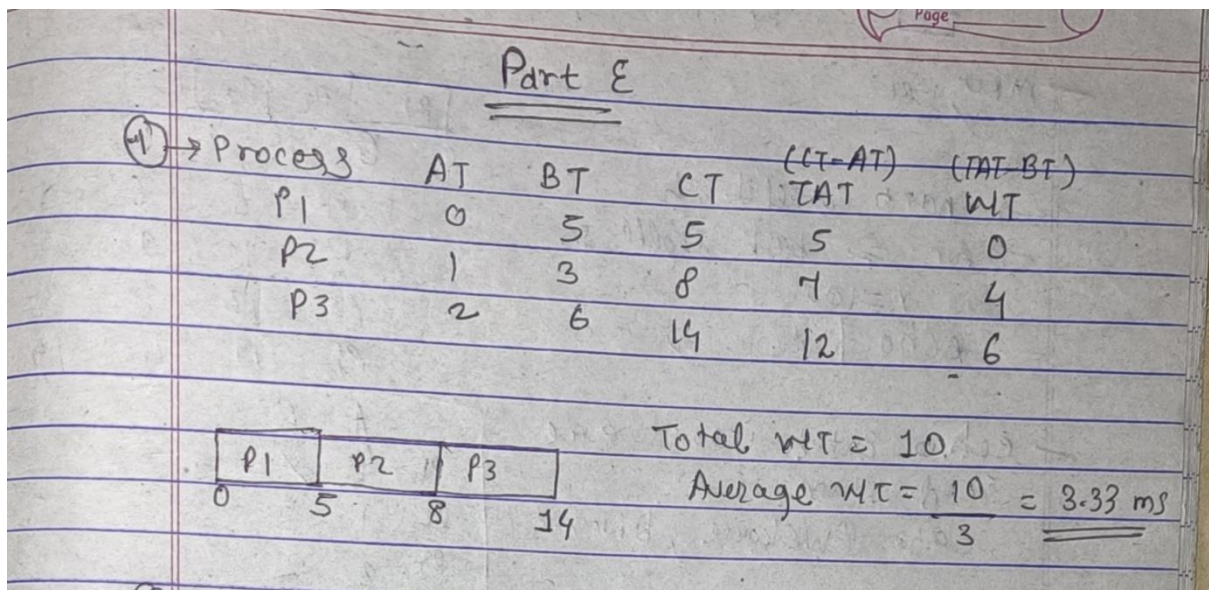 Page
Part E
1 → Process AT BT CT (CT-AT) TAT (TAT-BT) WT
P1 0 5 5 5 0
P2 1 3 8 7 4
P3 2 6 14 12 6
P1 P2 P3
0 5 8 14
Total WT = 10
Average WT = 10/3 = 3.33 ms